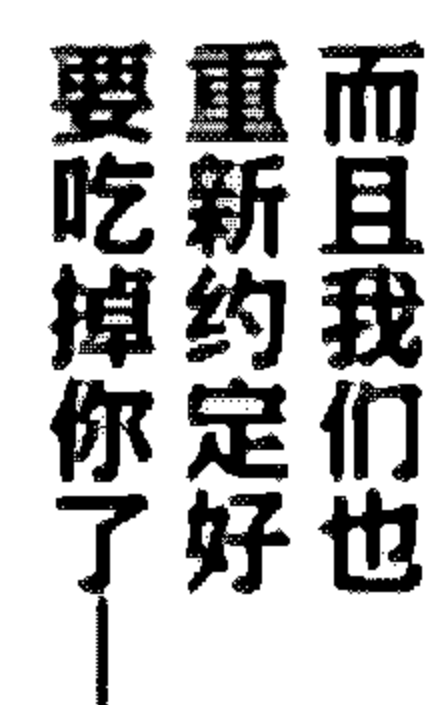 而且我们也
重新约定好
要吃掉你了—